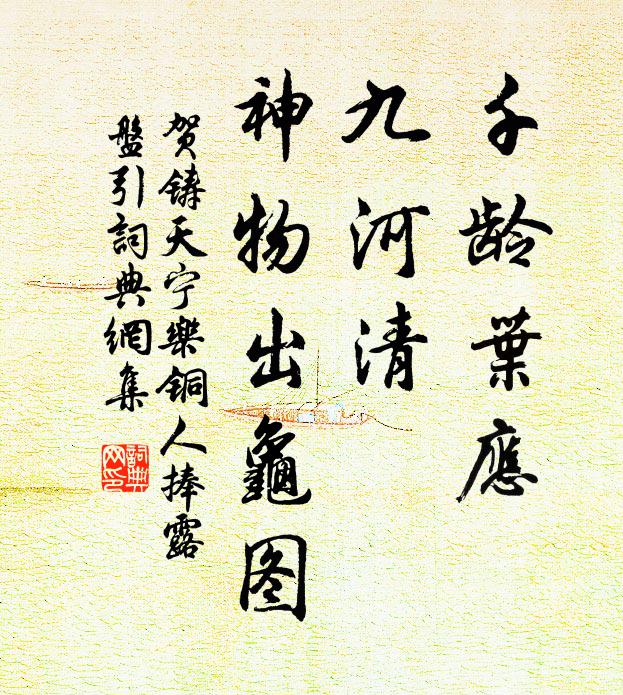 千龄葉應
九河清
神物出龜图
贺铸天宁樂铜人捧露
盤引詞典網集
詞典
网印